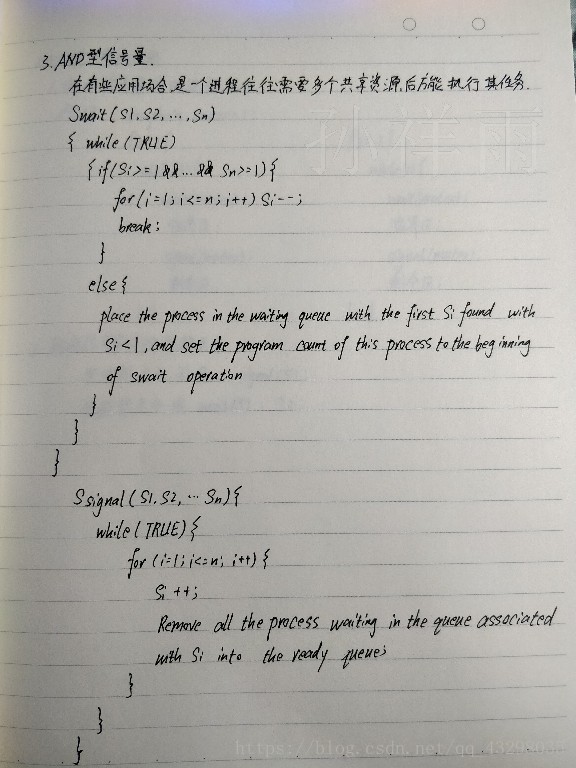 3. AND型信号量.
在有些应用场合,是一个进程往往需要多个共享资源后方能执行其任务.
Swait(S1, S2, ..., Sn)
{ while(TRUE)
{ if(Si>=1 && ... && Sn>=1){
for(i=1; i<=n; i++) Si--;
break;
}
else{
place the process in the waiting queue with the first Si found with
Si<1, and set the program count of this process to the beginning
of swait operation
}
}
}
Ssignal(S1, S2, ... Sn){
while(TRUE){
for (i=1; i<=n; i++) {
Si ++;
Remove all the process waiting in the queue associated
with Si into the ready queue;
}
}
}
孙祥雨